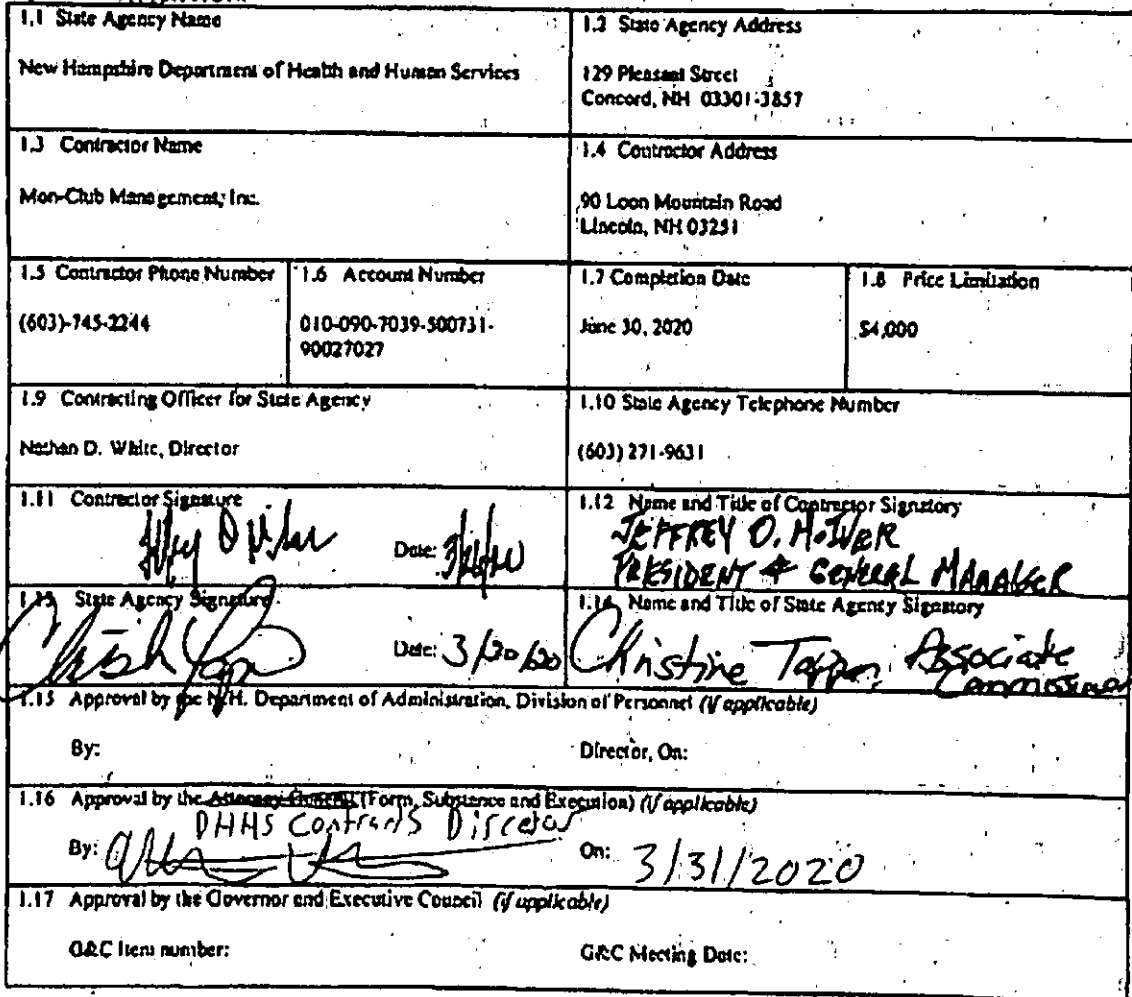 1.1 State Agency Name
New Hampshire Department of Health and Human Services
1.2 State Agency Address
129 Pleasant Street
Concord, NH 03301-3857
1.3 Contractor Name
Mon-Club Management, Inc.
1.4 Contractor Address
90 Loon Mountain Road
Lincoln, NH 03251
1.5 Contractor Phone Number
(603)-745-2244
1.6 Account Number
010-090-7039-500731-
90027027
1.7 Completion Date
June 30, 2020
1.8 Price Limitation
$4,000
1.9 Contracting Officer for State Agency
Nathan D. White, Director
1.10 State Agency Telephone Number
(603) 271-9631
1.11 Contractor Signature
Date:
1.12 Name and Title of Contractor Signatory
JEFFREY D.
PRESIDENT & GENERAL MANAGER
1.13 State Agency Signature
Date: 3/20/20
1.14 Name and Title of State Agency Signatory
Christine Tappan, Associate
Commissioner
1.15 Approval by the N.H. Department of Administration, Division of Personnel (if applicable)
By: Director, On:
1.16 Approval by the Attorney General (Form, Substance and Execution) (if applicable)
DHHS Contracts Director
By: On: 3/31/2020
1.17 Approval by the Governor and Executive Council (if applicable)
G&C Item number: G&C Meeting Date: